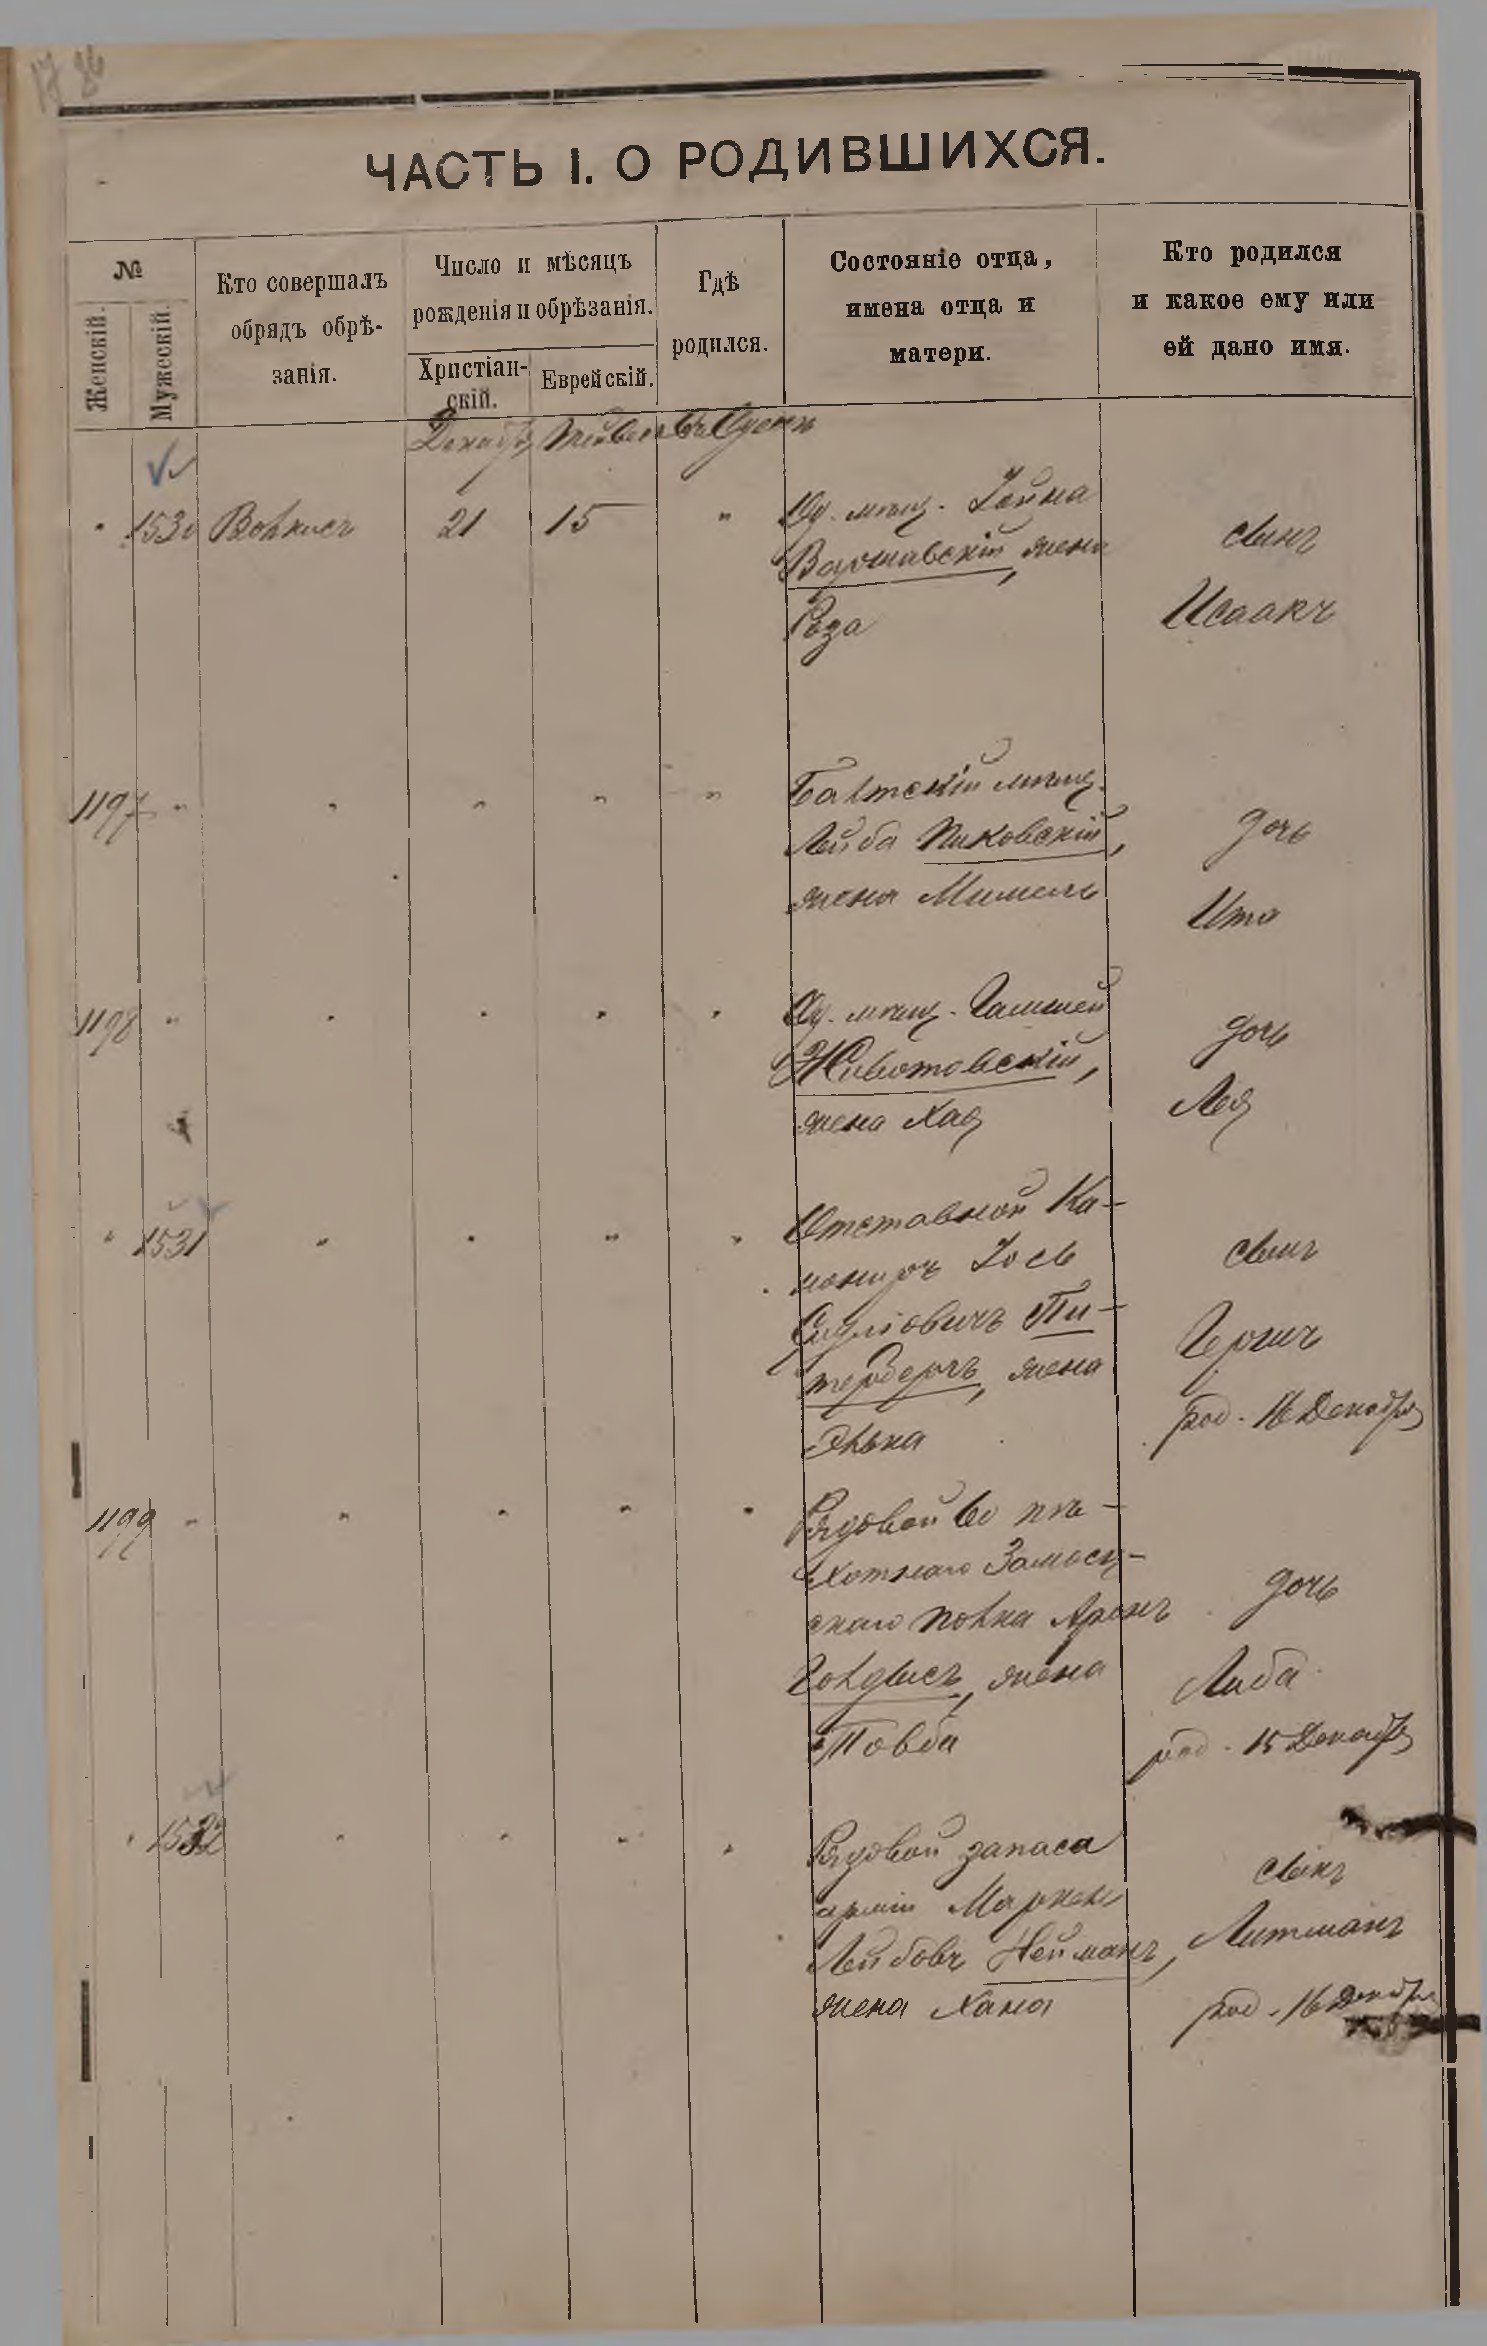 17 86
ЧАСТЬ I. О РОДИВШИХСЯ.
№
Женскій.
Мужескій.
Кто совершалъ
обрядъ обрѣ-
занія.
Число и мѣсяцъ
рожденія и обрѣзанія.
Христіан-
скій.
Еврейскій.
Гдѣ
родился.
Состояніе отца,
имена отца и
матери.
Кто родился
и какое ему или
ей дано имя.
Декабрь Тейвесъ въ Одессѣ
" 1530 Волкисъ 21 15 " Од. мѣщ. Іойна
Варшавскій, жена
Роза
сынъ
Исаакъ
1197 " " " " " Балтскій мѣщ.
Лейба Пиковскій,
жена Мишель
дочь
Ита
1198 " " " " " Од. мѣщ. Гамшей
Животовскій,
жена Хая
дочь
Лея
" 1531 " " " " Отставной Ка-
нониръ Іось
Пи-
терверъ, жена
Элька
сынъ
Гершъ
род. 16 Декабря
1199 " " " " " Рядовой 60 пѣ-
хотнаго Замосц-
скаго полка Аронъ
Голдисъ, жена
Товба
дочь
Либа
род. 15 Декабря
" 1532 " " " " Рядовой запаса
арміи
Лейбовъ Нейманъ,
жена Хана
сынъ
Литманъ
род. 16 Декабря